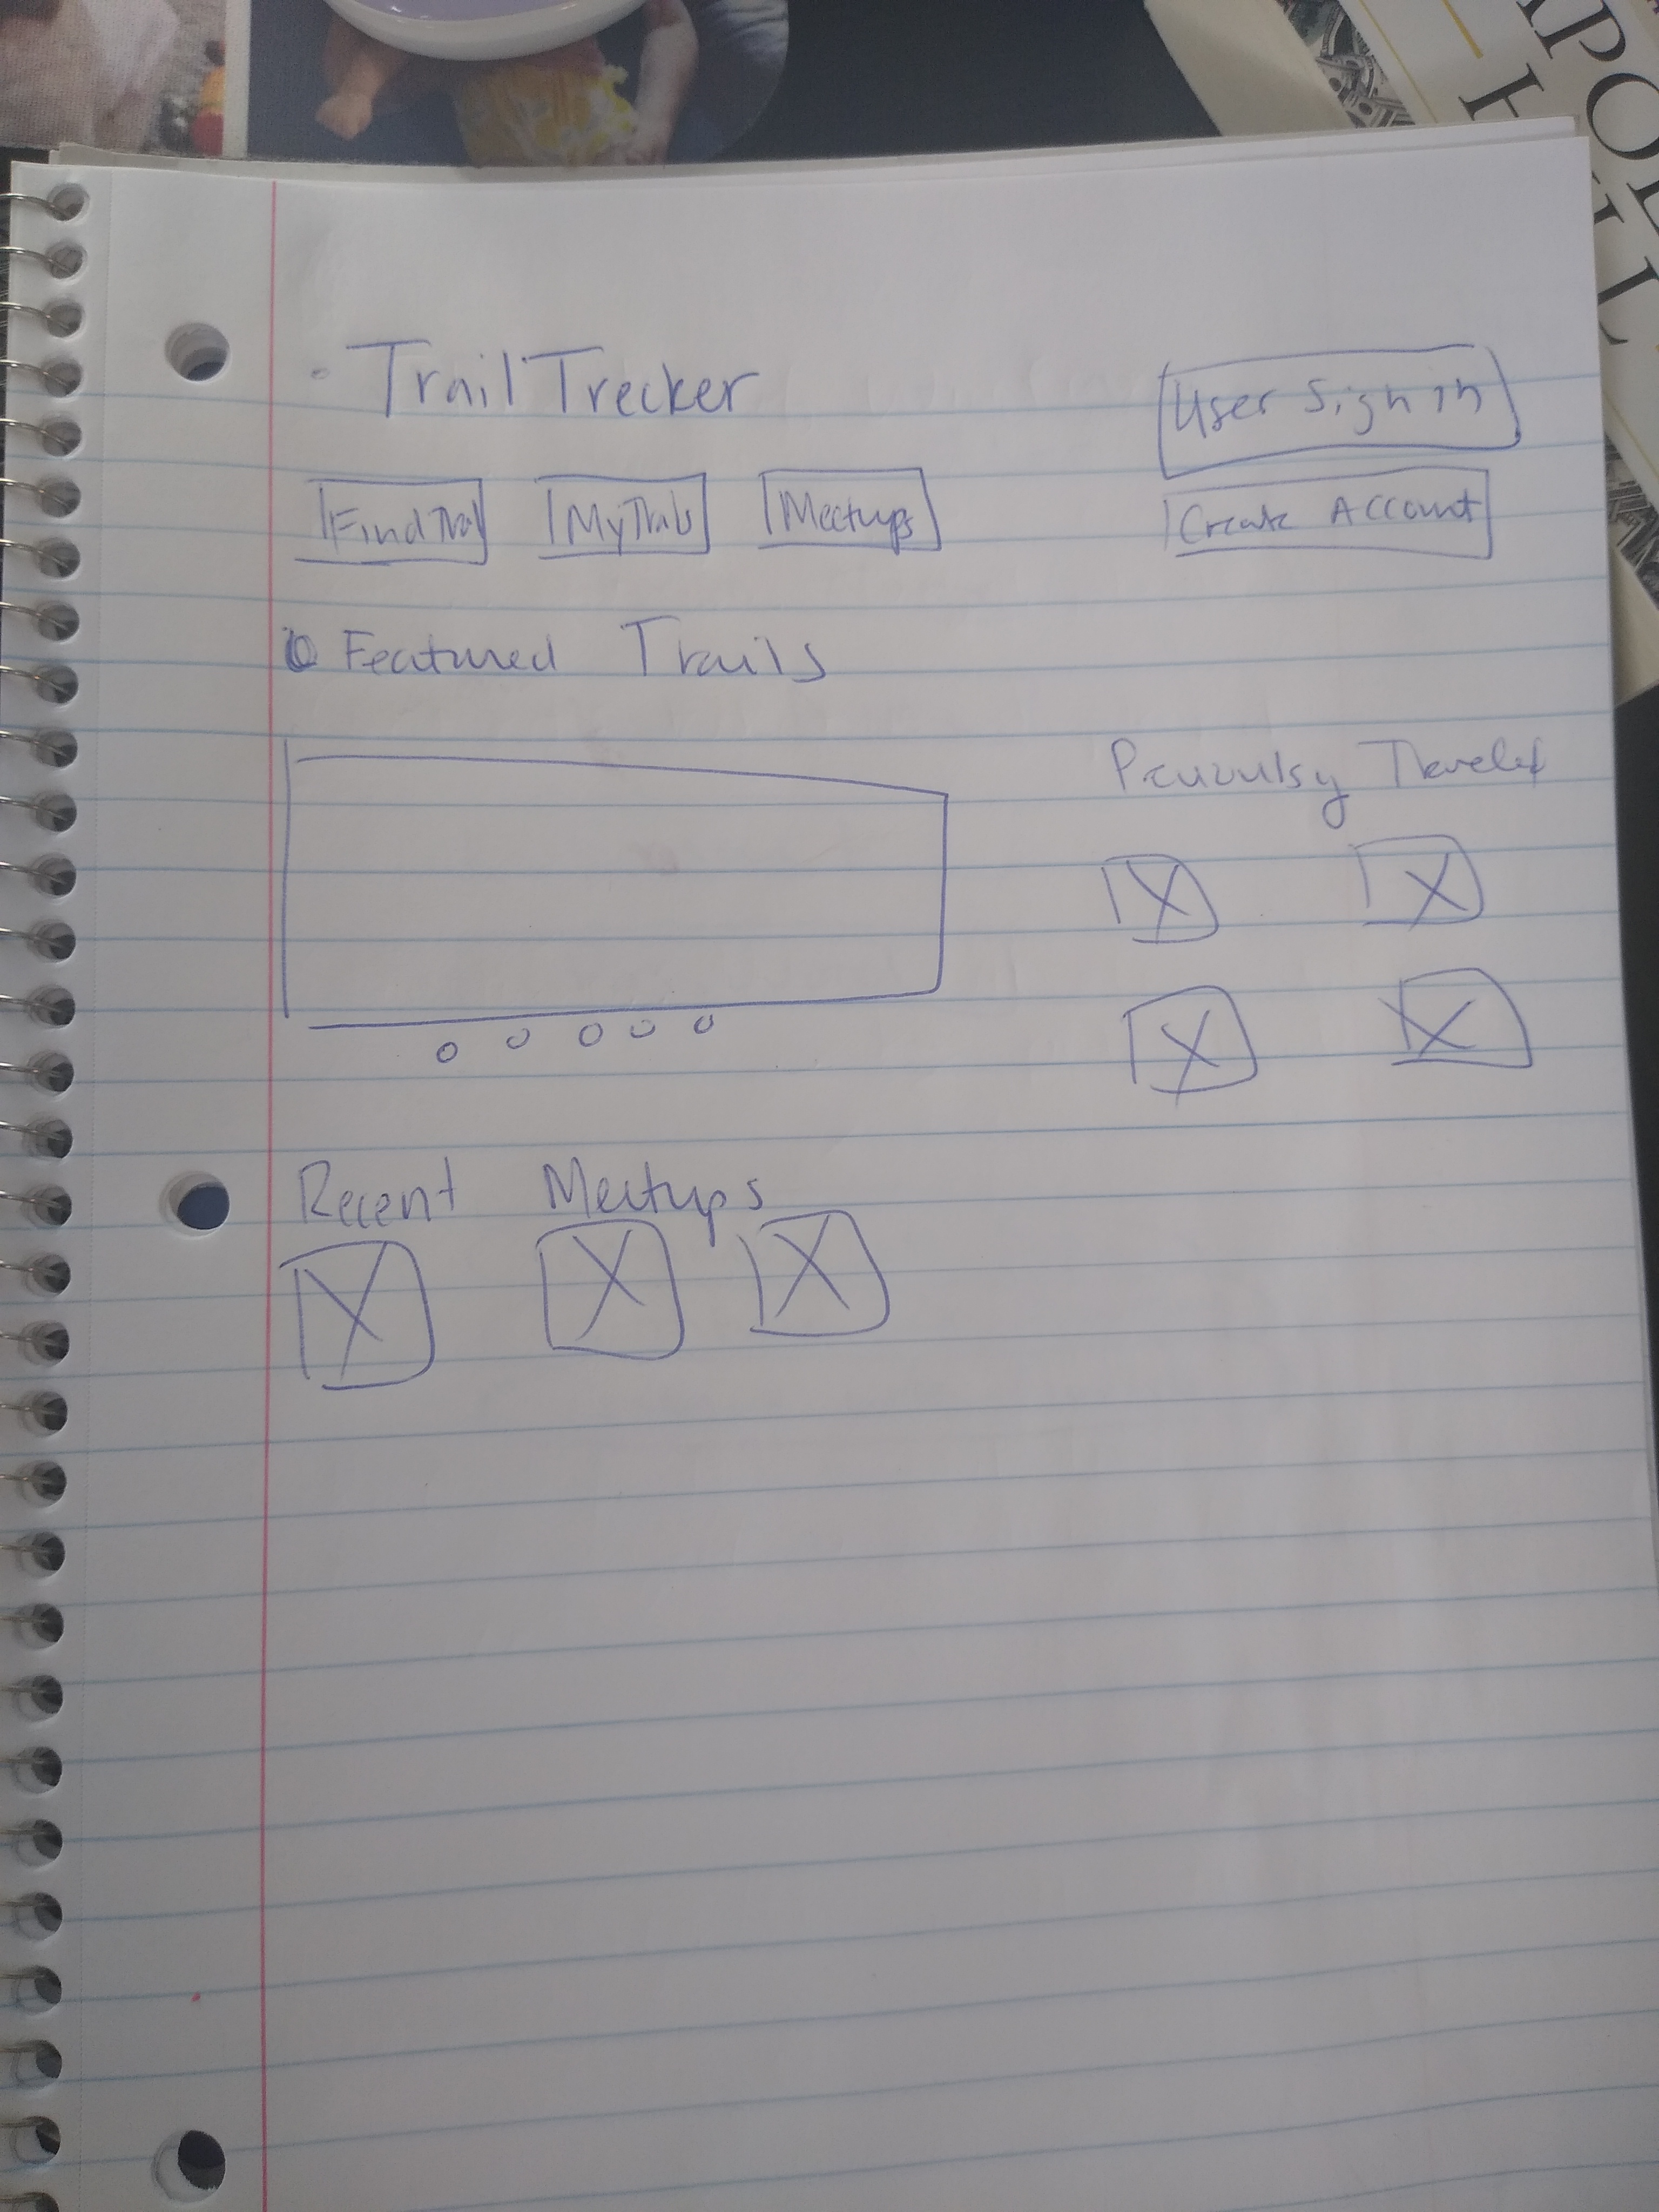 Trail Trecker
User Sign in
Find Trail
My Trails
Meetups
Create Account
Featured Trails
Traveled
Recent Meetups